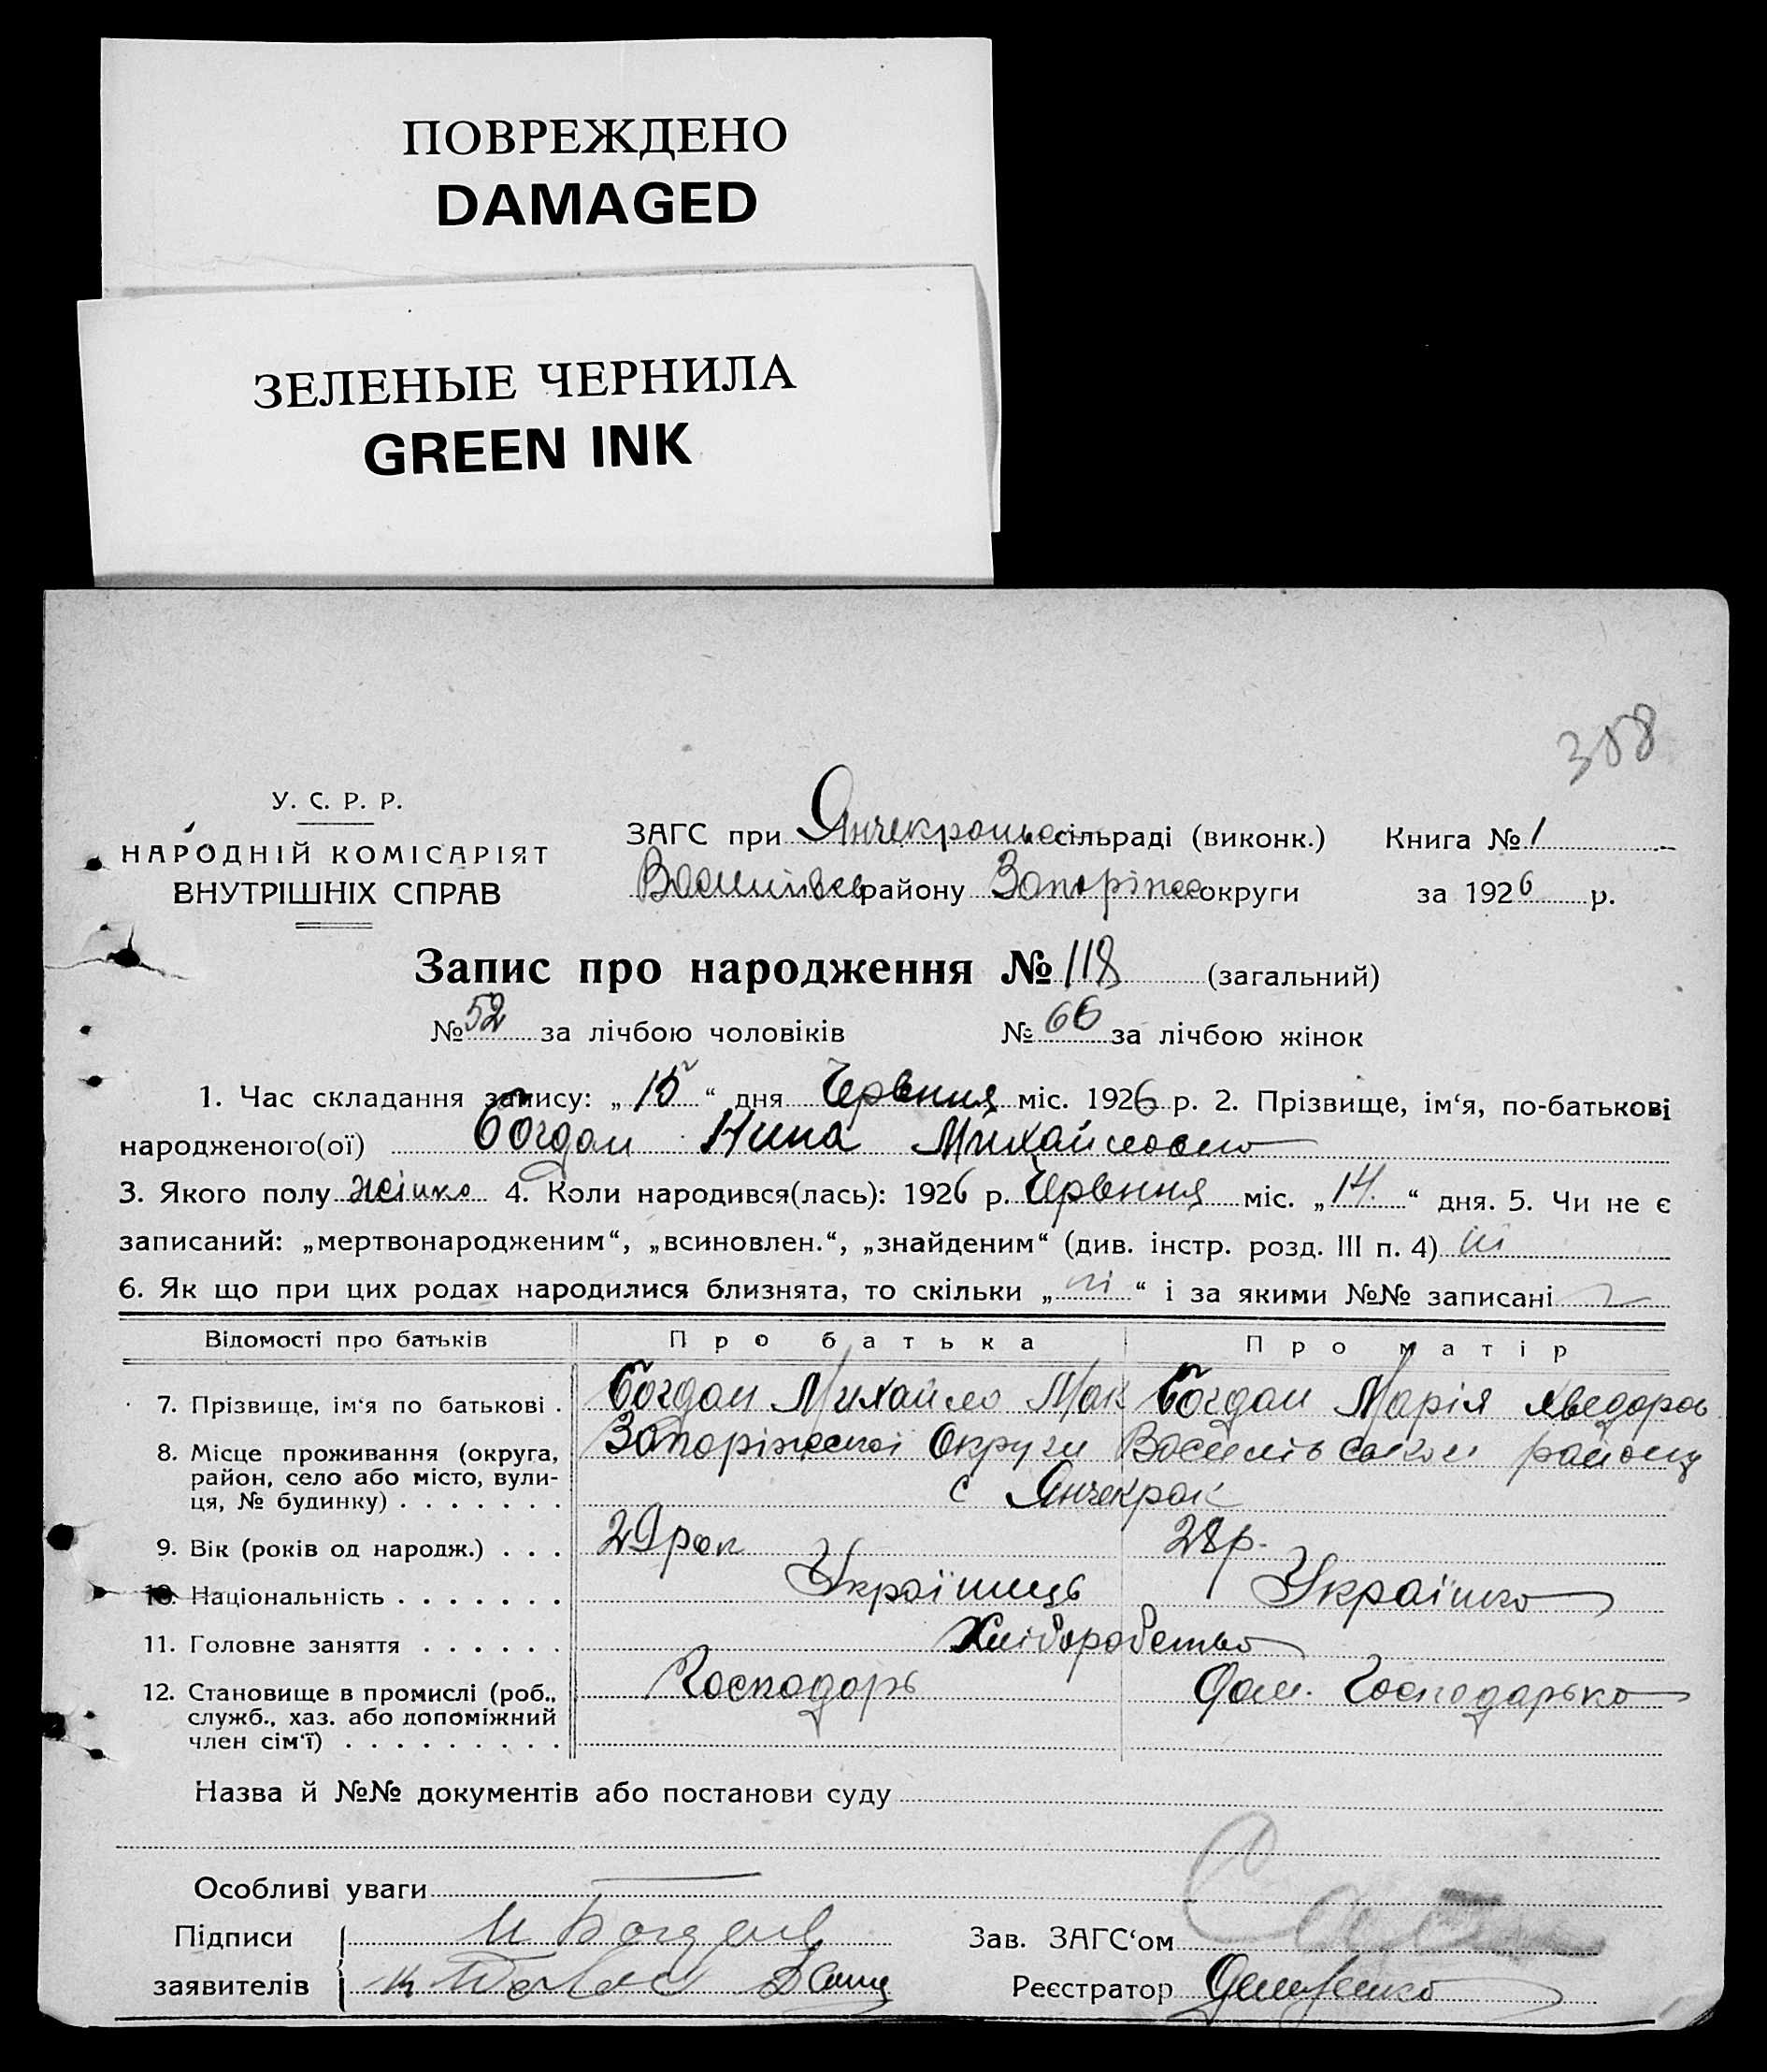 ПОВРЕЖДЕНО
DAMAGED
ЗЕЛЕНЫЕ ЧЕРНИЛА
GREEN INK
358
У. С. Р. Р.
НАРОДНІЙ КОМІСАРІЯТ
ВНУТРІШНІХ СПРАВ
ЗАГС при Янчекрацьк сільраді (виконк.) Книга № 1
Василівськ району Запоріжс округи за 1926 р.
Запис про народження № 118 (загальний)
№ 52 за лічбою чоловіків № 66 за лічбою жінок
1. Час складання запису: „ 15 “ дня Червння міс. 1926 р. 2. Прізвище, ім‘я, по-батькові
народженого(ої) Богдан Нина Михайловно
3. Якого полу жінко 4. Коли народився(лась): 1926 р. Червння міс. „ 14. “ дня. 5. Чи не є
записаний: „мертвонародженим“, „всиновлен.“, „знайденим“ (див. інстр. розд. III п. 4) ні
6. Як що при цих родах народилися близнята, то скільки „ ні “ і за якими №№ записані
Відомості про батьків Про батька Про матір
7. Прізвище, ім‘я по батькові . Богдан Михайло Мак Богдан Марія Хведоров
8. Місце проживання (округа, Запоріжської Округи Василівського району
район, село або місто, вули-
ця, № будинку) . . . . . . . с Янчекрак
9. Вік (років од народж.) . . . 29 рок 28 р.
10. Національність . . . . . . . Українець Українко
11. Головне заняття . . . . . . Хліборобство
12. Становище в промислі (роб., Господорь Дом. Господарько
служб., хаз. або допоміжний
член сім‘ї) . . . . . . . . . .
Назва й №№ документів або постанови суду
Особливі уваги
Підписи М Богдан Зав. ЗАГС‘ом
заявителів Реєстратор